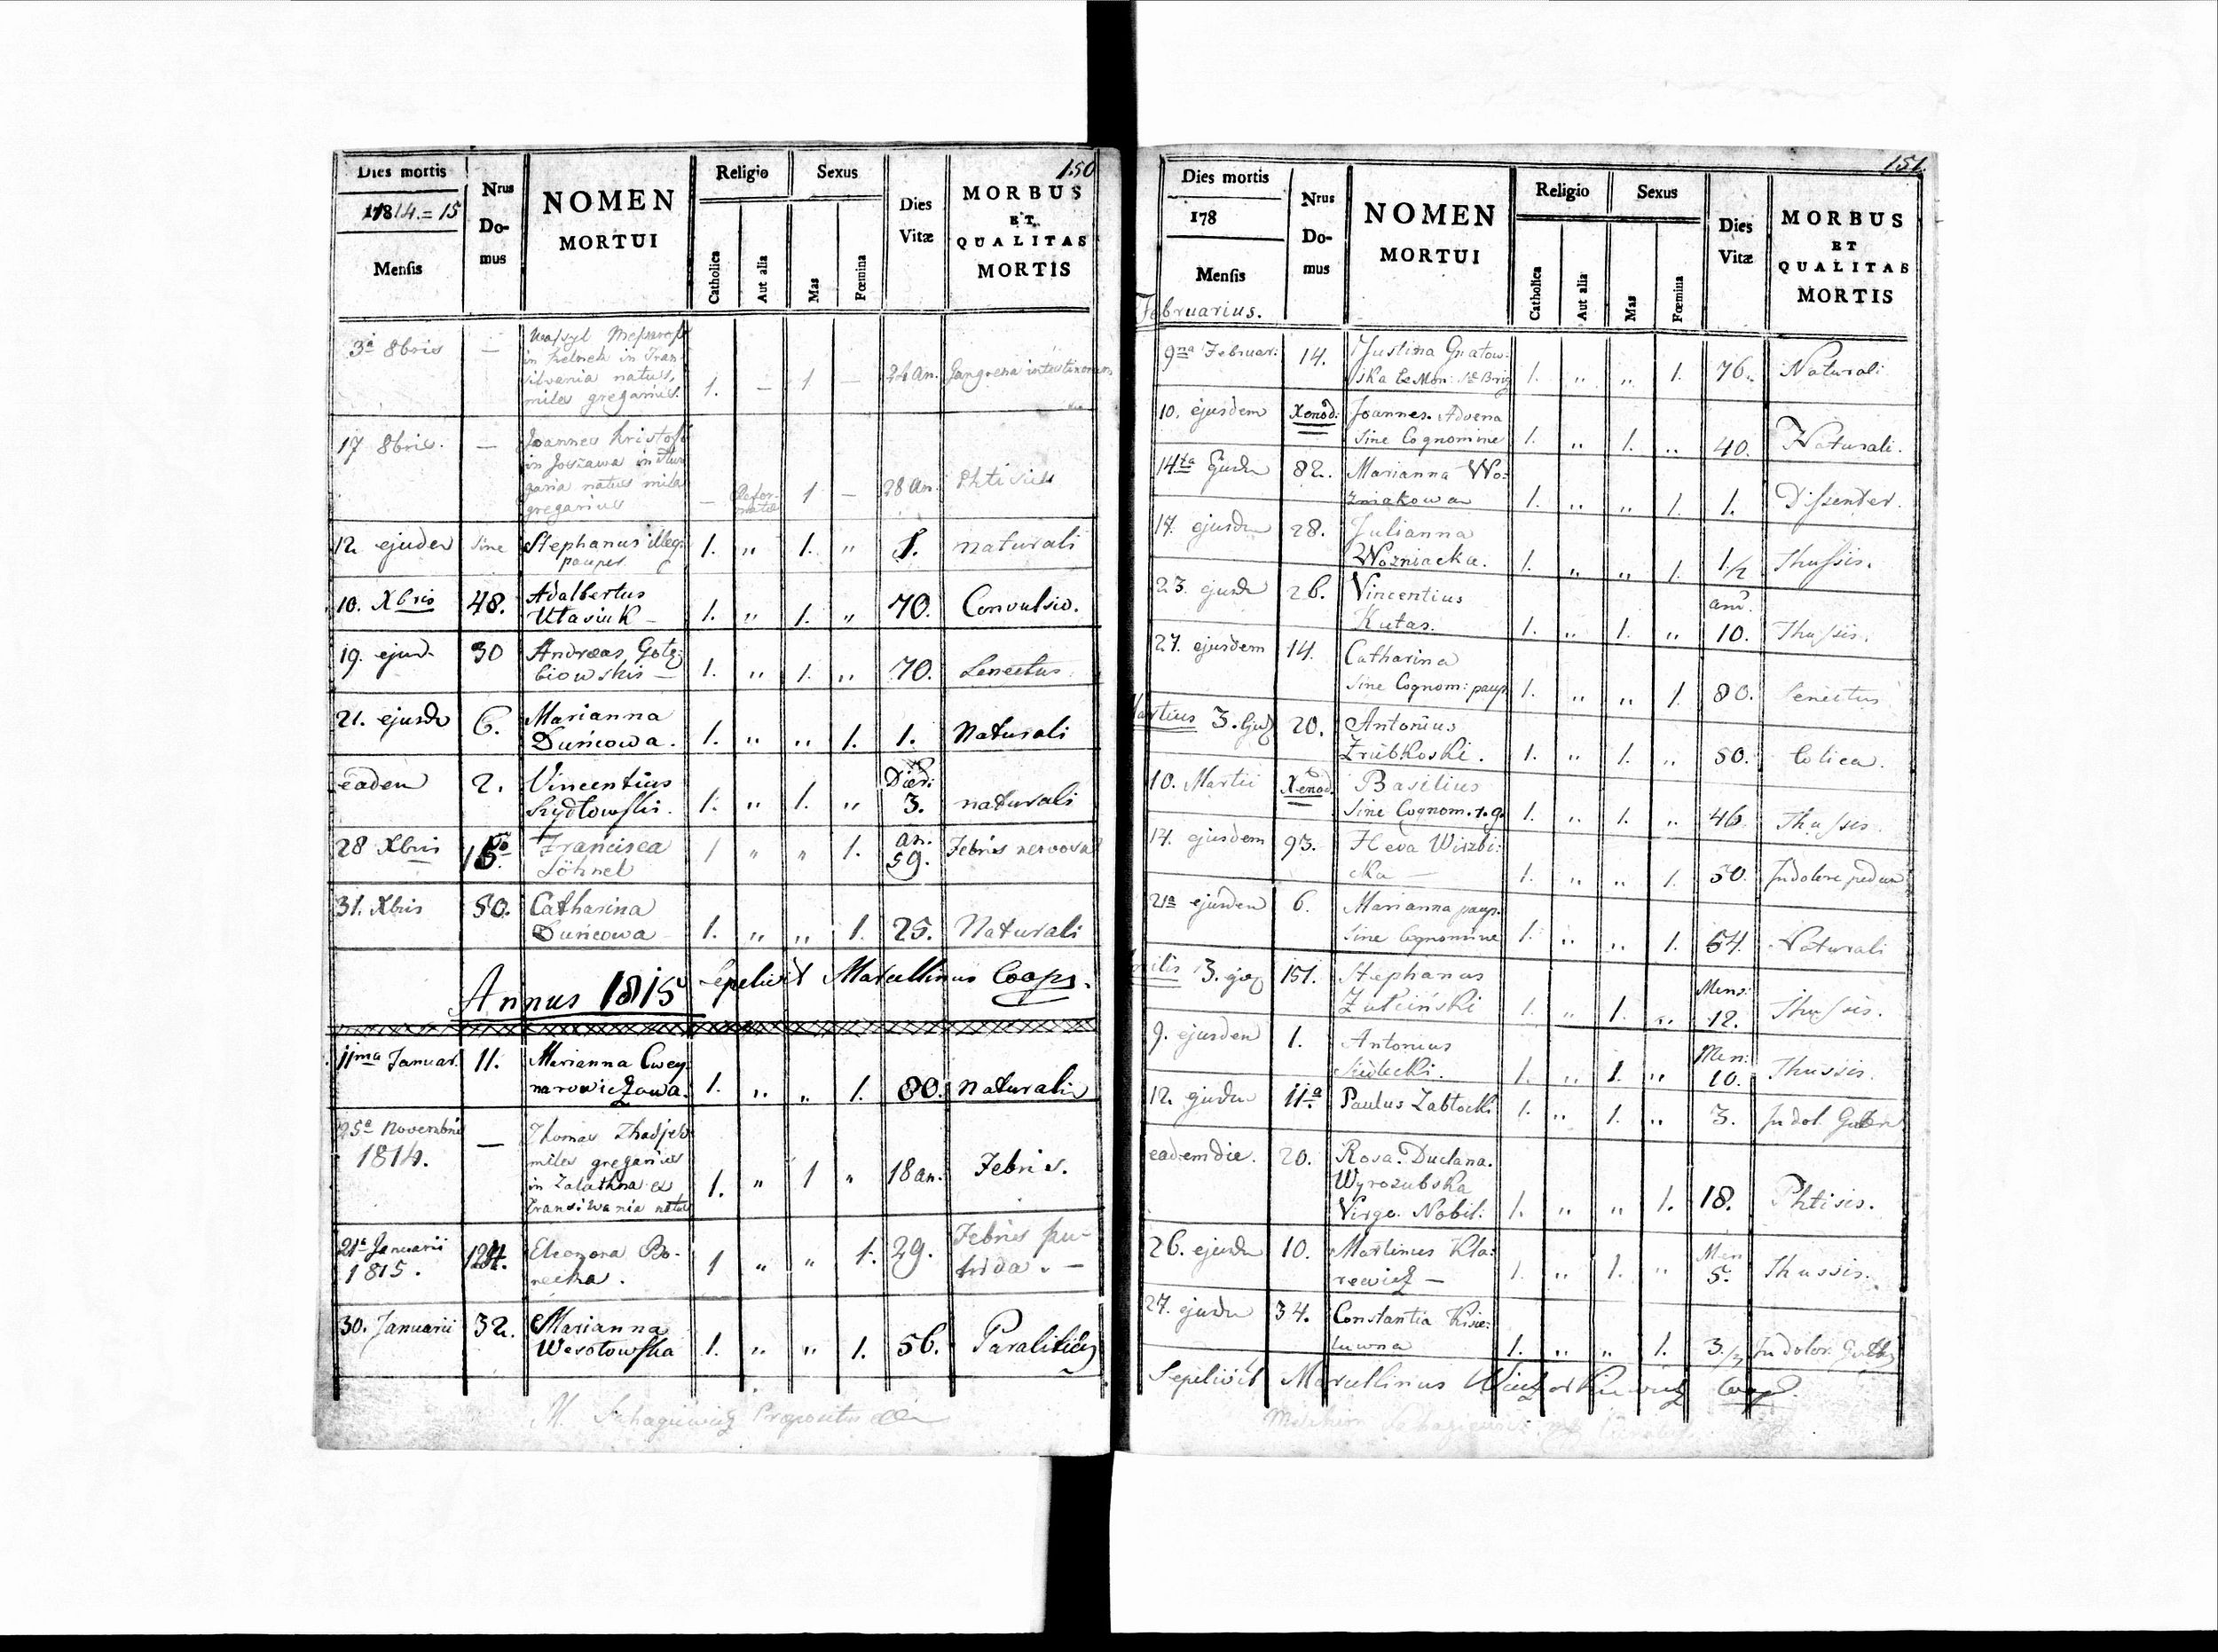 150
Dies mortis
Nrus Domus
NOMEN MORTUI
Religio
Sexus
Dies Vitæ
MORBUS ET QUALITAS MORTIS
1814 = 15
Mensis
Catholica
Aut alia
Mas
Fœmina
3a 8bris — in Transilvania natus, miles gregarius. 1. — 1 — 24 an. Gangrena intestinorum
17 8bris. — Joannes Kristof in natus miles gregarius — Reformatæ 1 — 28 an. Phtisis
12 ejusdem Sine Stephanus illeg. pauper. 1. " 1. " 1. naturali
10. Xbris 48. Adalbertus Utasiuk — 1. " 1. " 70. Convulsio.
19. ejusd. 30 Andreas Gołębiowski — 1. " 1. " 70. Senectus
21. ejusde 6. Marianna Duńcowa. 1. " " 1. 1. Naturali
eadem 2. Vincentius Szydłowski. 1. " 1. " Dier: 3. naturali
28 Xbris Francisca Löhnel 1 " " 1. an. 59. Febris nervosa
31. Xbris 50. Catharina Duńcowa 1. " " 1. 25. Naturali
Annus 1815 Sepelivit Marcellinus Coop.
11ma Januar. 11. Marianna Cweynarowiczowa. 1. " " 1. 80. Naturali
25a Novembris 1814. — Thomas miles gregarius in Zalathna ex Transilvania natus 1. " 1 " 18 an. Febris.
21a Januarii 1815. 124. Eleonora Bonecka. 1 " " 1. 29. Febris putrida. —
30. Januarii 32. Marianna Wesołowska 1. " " 1. 56. Paraliticus
M. Præpositus
151.
Dies mortis
Nrus Domus
NOMEN MORTUI
Religio
Sexus
Dies Vitæ
MORBUS ET QUALITAS MORTIS
178
Mensis
Catholica
Aut alia
Mas
Fœmina
Februarius.
9na Februar: 14. Justina Gnatowska 1. " " 1. 76. Naturali
10. ejusdem Xenod: Joannes. Advena Sine Cognomine 1. " 1. " 40. Naturali.
14ta Ejusde 82. Marianna Wozniakowa 1. " " 1. 1. Dissenter.
17. ejusde 28. Julianna Wozniacka. 1. " " 1. 1/2 Thussis.
23. ejusde 26. Vincentius Kutas. 1. " 1. " ann. 10. Thussis.
27. ejusdem 14. Catharina Sine Cognom: paup. 1. " " 1. 80. Senectus
Martius 3. 20. Antonius Zrubkoski. 1. " 1. " 50. Colica.
10. Martii Xenod. Basilius Sine Cognom. 1. " 1. " 46. Thussis.
14. ejusdem 93. Heva Wirzbicka — 1. " " 1. 50. In dolore pedum
21a ejusdem 6. Marianna paup. Sine Cognomine 1. " " 1. 54. Naturali
3. 151. Stephanus Zulciński 1. " 1. " Mens: 12. Thussis.
9. ejusdem 1. Antonius Siedlecki. 1. " 1. " Men: 10. Thussis.
12. ejusdem 11.a Paulus Zabłocki 1. " 1. " 3. In dol.
eadem die. 20. Rosa. Duclana. Wyrozubska Virgo. Nobil: 1. " " 1. 18. Phtisis.
26. ejusde 10. Martinus Klarewicz — 1. " 1. " Men 5. Thussis.
27. ejusde 34. Constantia 1. " " 1. In dolor.
Sepelivit Marcellinus Coop.